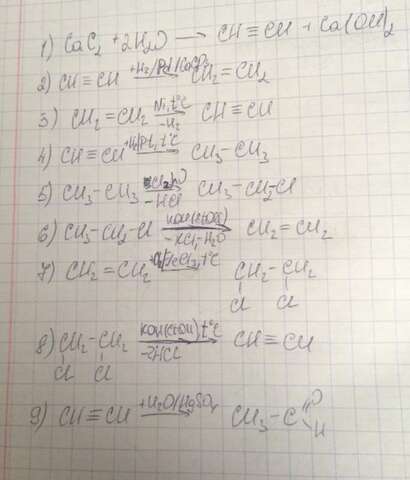 1) CaC₂ + 2H₂O → CH≡CH + Ca(OH)₂
2) CH≡CH +H₂/Pd/CaCO₃ → CH₂=CH₂
3) CH₂=CH₂ Ni, t°C → -H₂ CH≡CH
4) CH≡CH +H₂/Pt, t°C → CH₃-CH₃
5) CH₃-CH₃ Cl₂, hν → -HCl CH₃-CH₂-Cl
6) CH₃-CH₂-Cl → -KCl, -H₂O CH₂=CH₂
7) CH₂=CH₂ +Cl₂/FeCl₃, t°C → CH₂-CH₂
Cl Cl
8) CH₂-CH₂ t°C → -2HCl CH≡CH
Cl Cl
9) CH≡CH +H₂O/HgSO₄ → CH₃-C
O
H